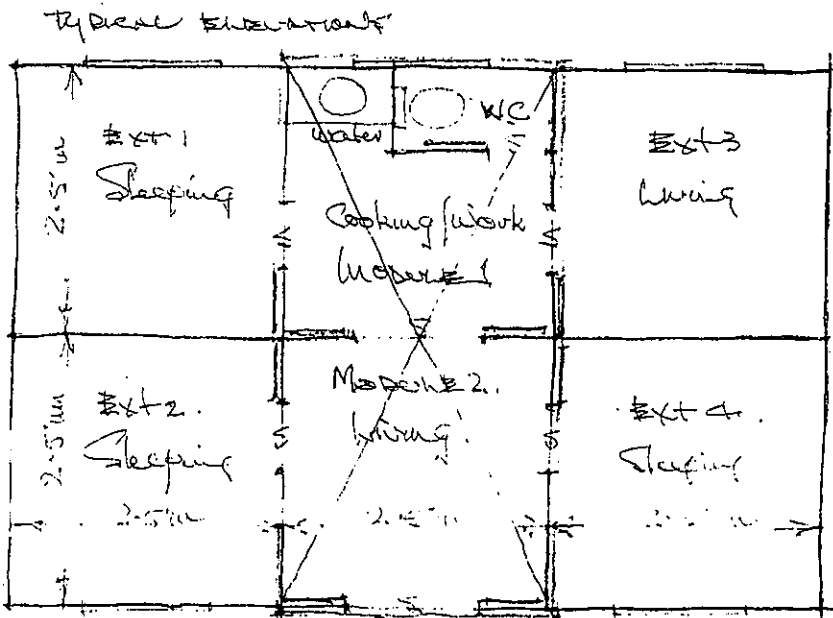 TYPICAL ELEVATIONS
Ext 1
Sleeping
water
WC
Ext 3
Living
Cooking/work
Module 1
2.5m
Ext 2.
Sleeping
Module 2.
Living
Ext 4.
Sleeping
2.5m
2.5m
2.5m